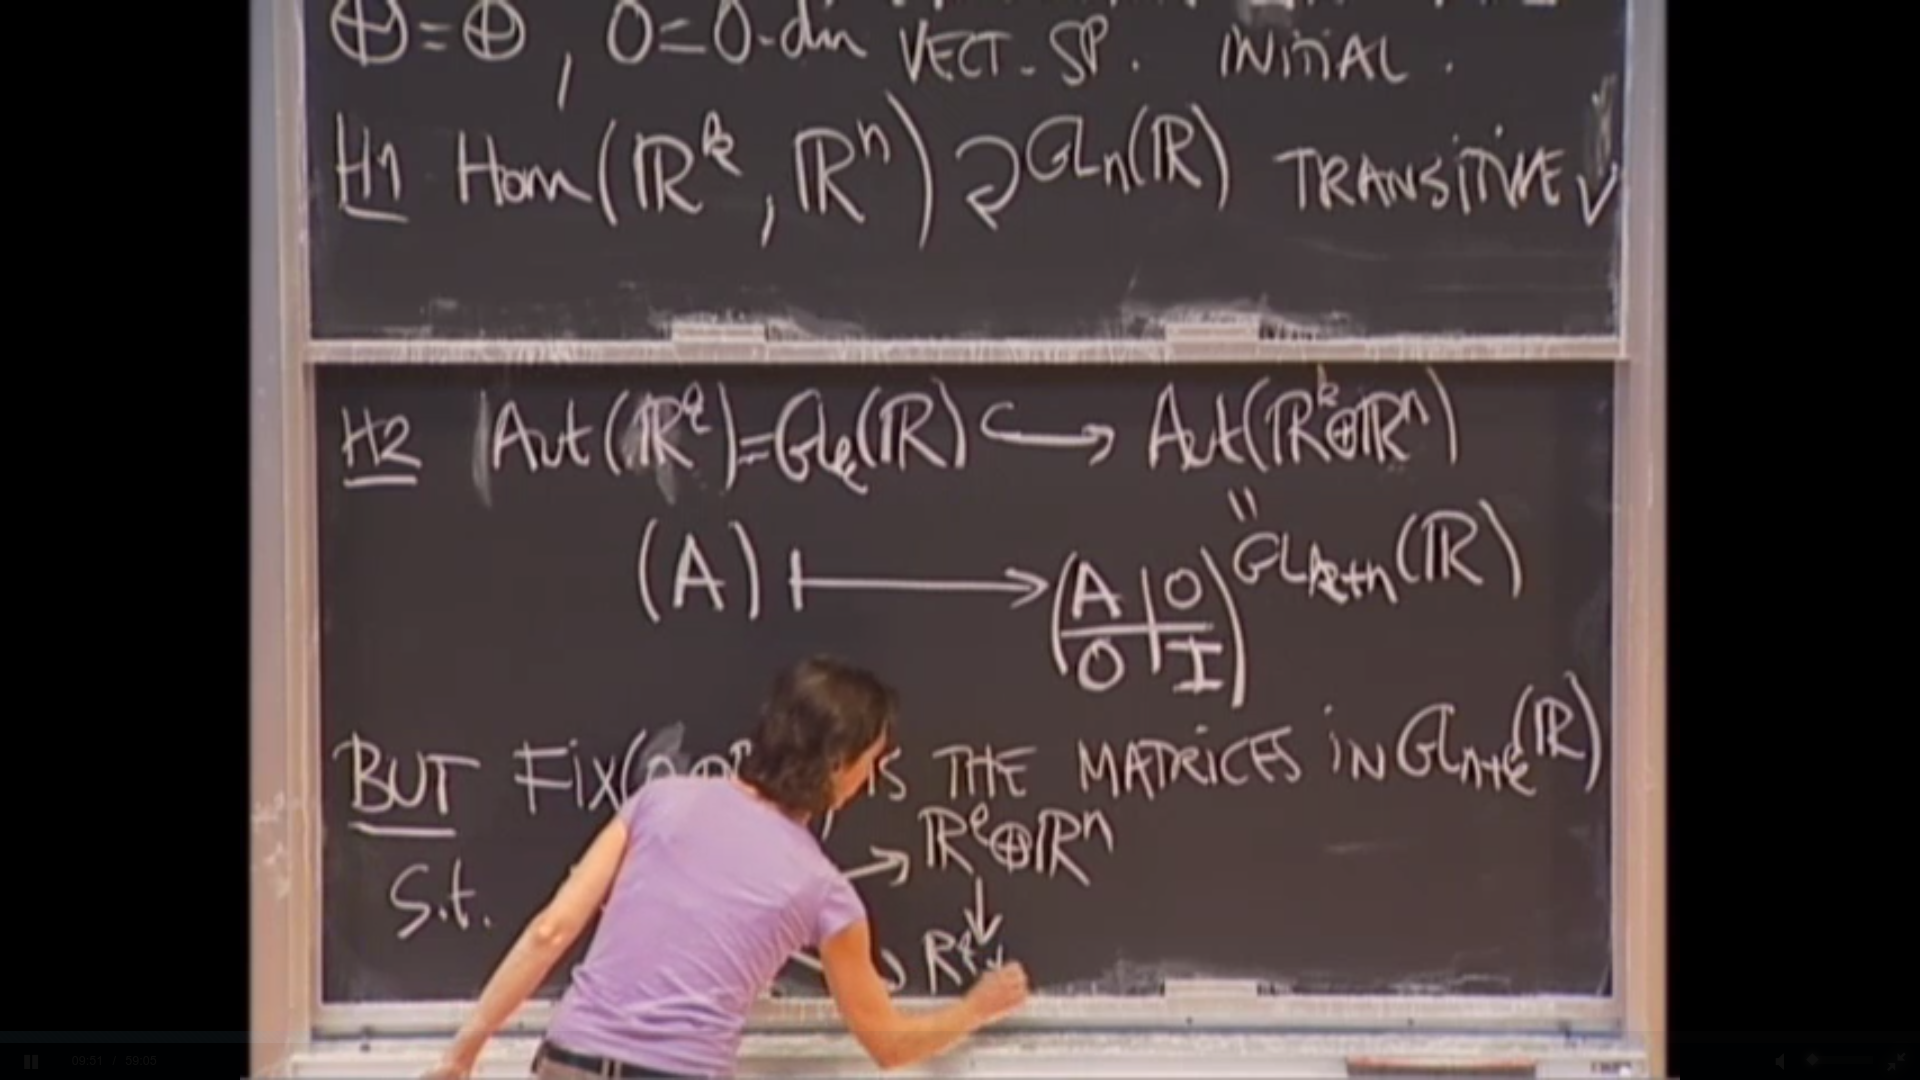 ⊕=⊕, 0=0-dim VECT-SP. INITIAL.
H1 Hom(ℝ^k, ℝ^n) ⊋ GL_n(ℝ) TRANSITIVE ✓
H2 Aut(ℝ^k)=GL_k(ℝ) ↪ Aut(ℝ^k⊕ℝ^n)
"
(A) ⟼ (A|0 / 0|I) GL_{k+n}(ℝ)
BUT Fix( IS THE MATRICES IN GL_{n+k}(ℝ)
→ ℝ^k⊕ℝ^n
s.t. ↓
ℝ^k
09:51 / 59:05